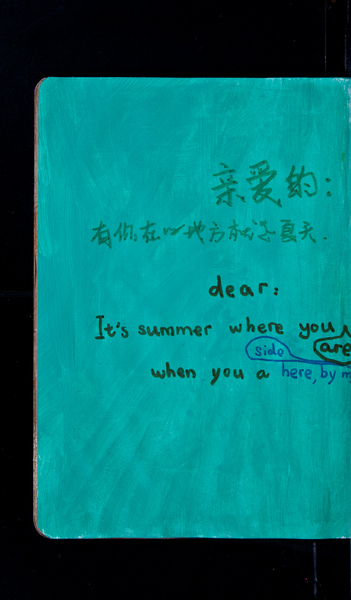 亲爱的:
有你在的地方就是夏天.
dear:
It's summer where you
side are
when you a here, by m